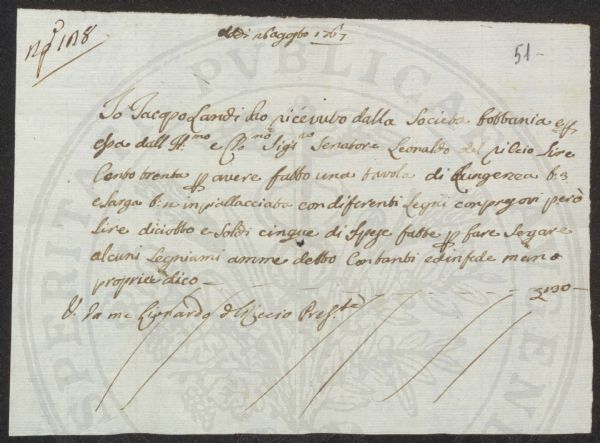 N° 118
Adi 26 agosto 1767
51
Io Jacopo Landi ho ricevuto dalla Società Bottania e
dall Ill.mo e Cl.mo Sig.re Senatore Leonaldo del Riccio lire
Cento trenta p avere fatto una tavola di lungezza b: 3
e larga b: 2 inpiallacciata con diferenti Legni conpresovi però
lire diciotto e soldi cinque di spese fatte p fare segare
alcuni Legniami amme detto Contanti ed in fede mano
propria dico £ 130
V. Da me Lionardo del Riccio Pres.te
SPERITAS PVBLICAE